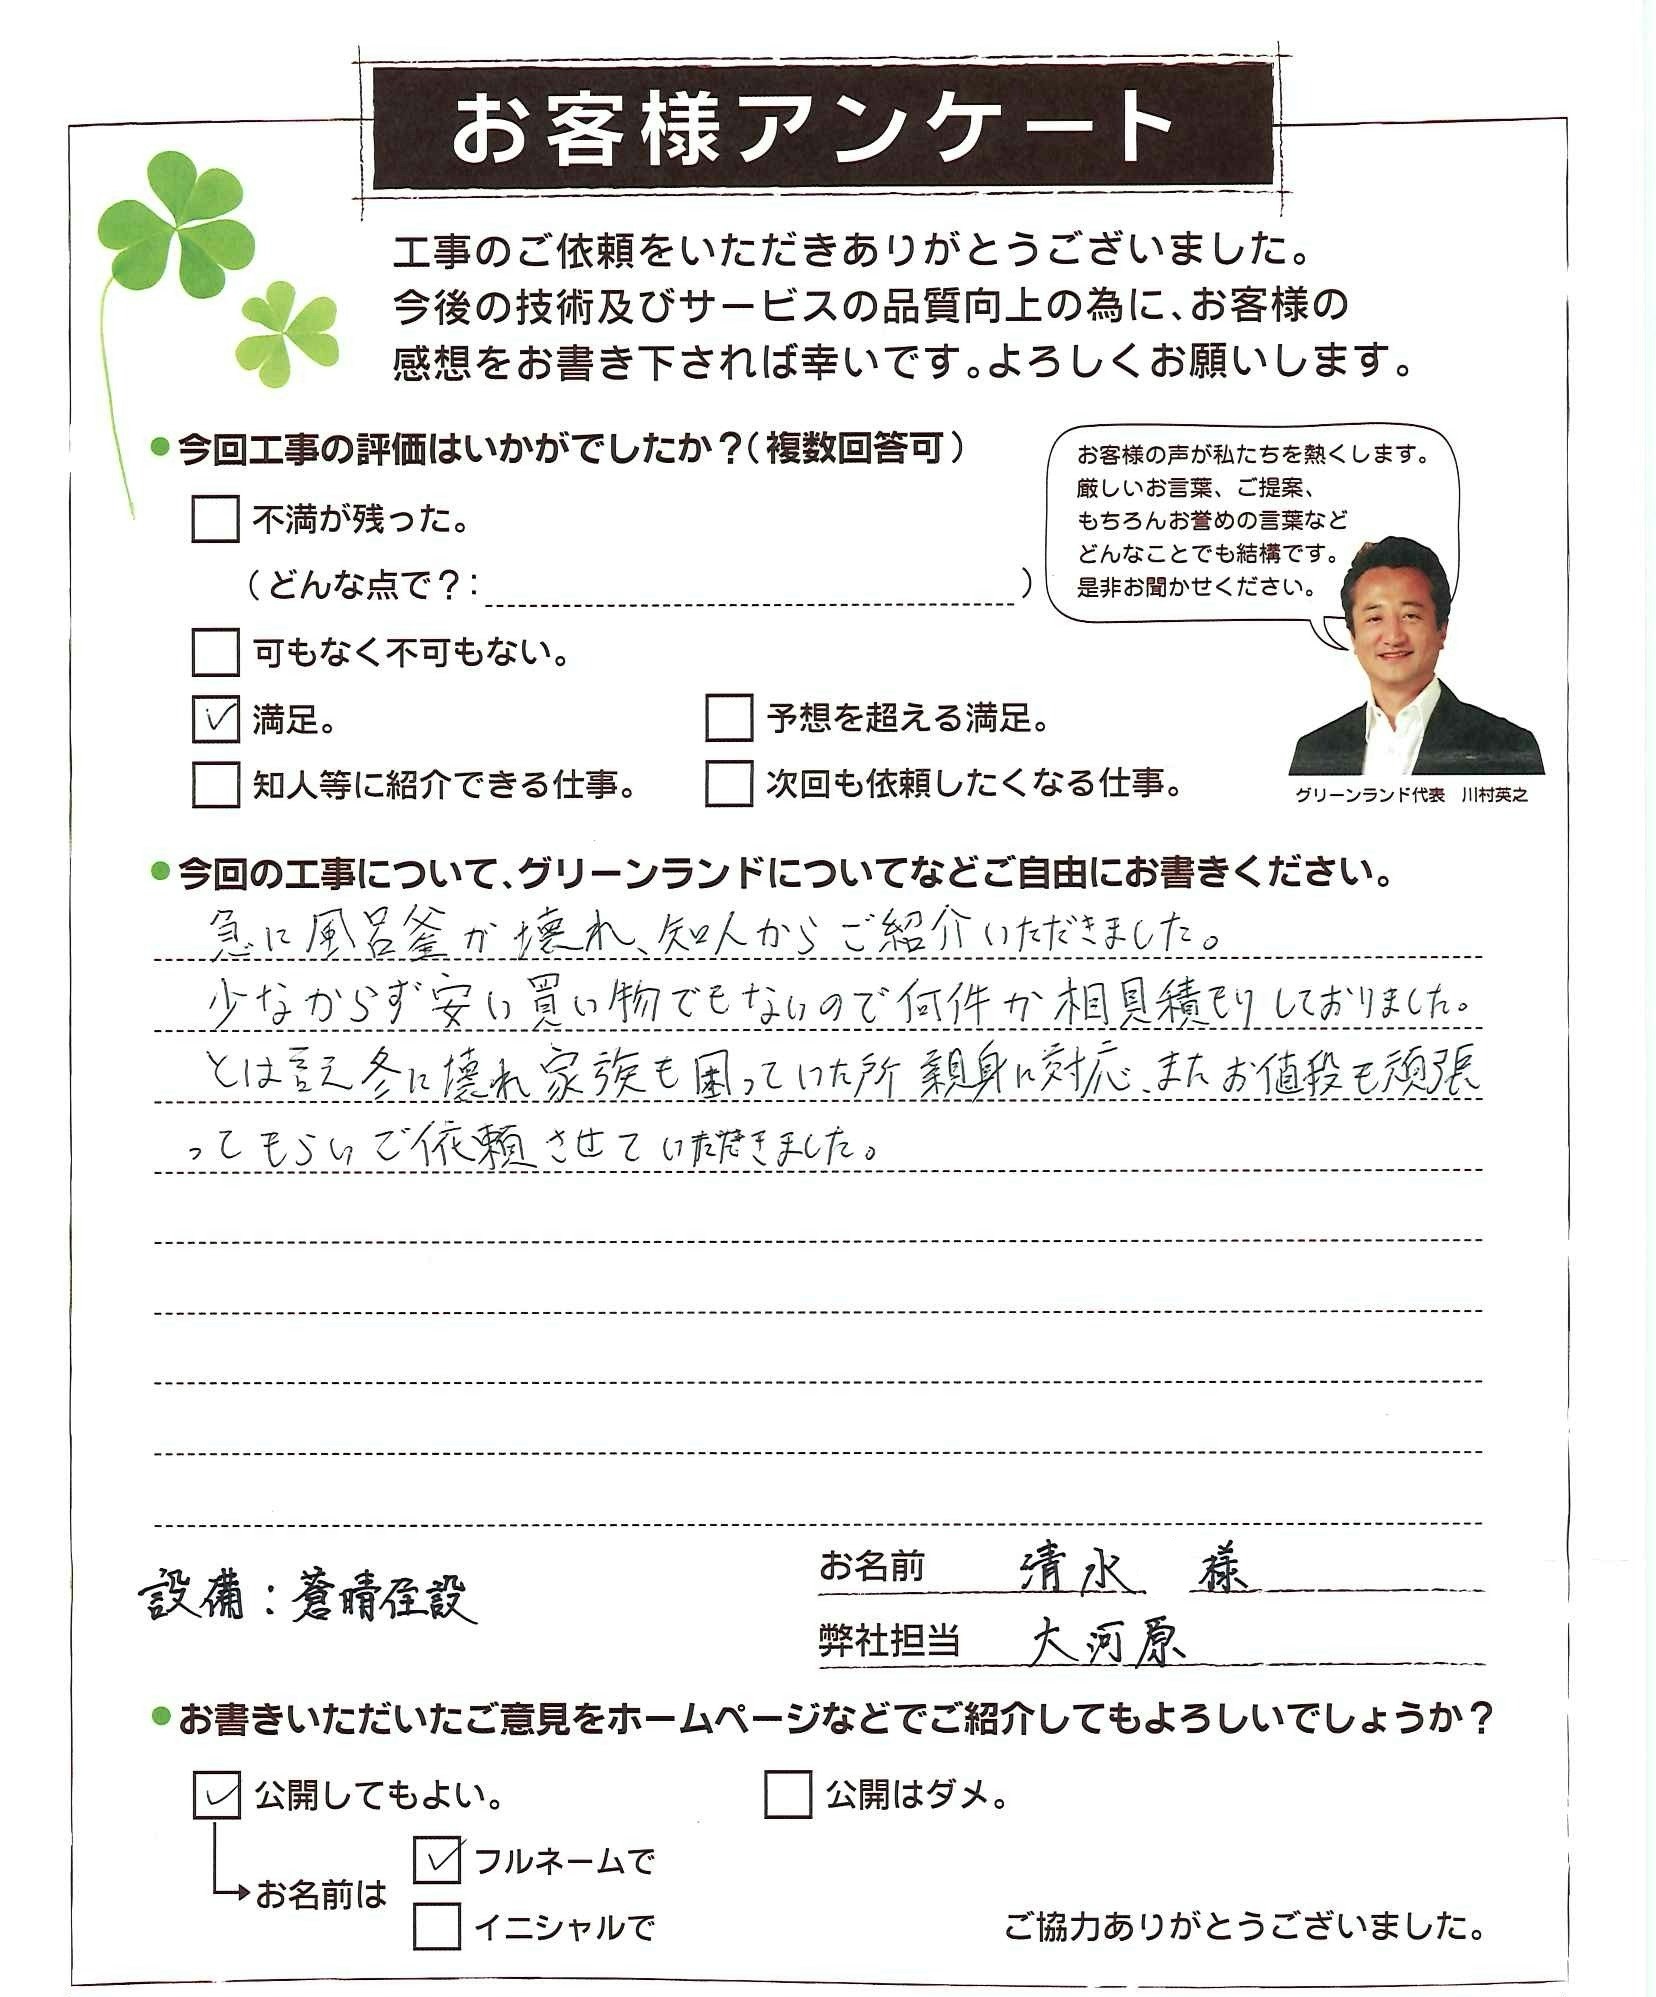 お客様アンケート
工事のご依頼をいただきありがとうございました。
今後の技術及びサービスの品質向上の為に、お客様の
感想をお書き下されば幸いです。よろしくお願いします。
●今回工事の評価はいかがでしたか？（複数回答可）
不満が残った。
（どんな点で？：　）
可もなく不可もない。
満足。
予想を超える満足。
知人等に紹介できる仕事。
次回も依頼したくなる仕事。
お客様の声が私たちを熱くします。
厳しいお言葉、ご提案、
もちろんお誉めの言葉など
どんなことでも結構です。
是非お聞かせください。
グリーンランド代表　川村英之
●今回の工事について、グリーンランドについてなどご自由にお書きください。
急に風呂釜が壊れ、知人からご紹介いただきました。
少なからず安い買い物でもないので何件か相見積もりしておりました。
とは言え冬に壊れ家族も困っていた所親身に対応、またお値段も頑張
ってもらいご依頼させていただきました。
お名前　清水　様
設備：蒼晴住設
弊社担当　大河原
●お書きいただいたご意見をホームページなどでご紹介してもよろしいでしょうか？
公開してもよい。
公開はダメ。
お名前は
フルネームで
イニシャルで
ご協力ありがとうございました。